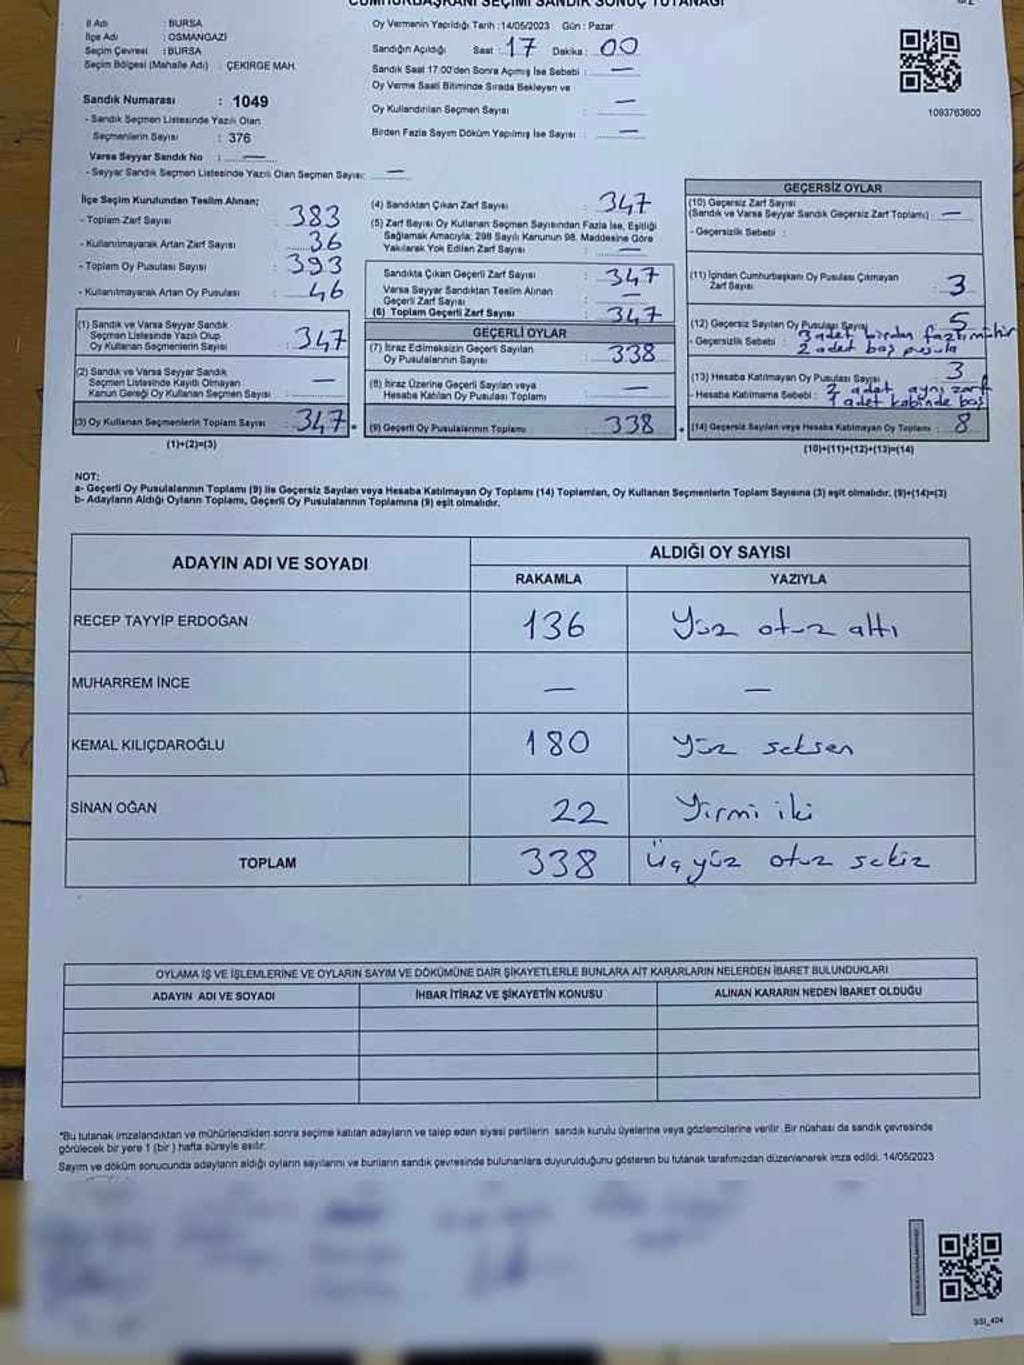 CUMHURBAŞKANI SEÇİMİ SANDIK SONUÇ TUTANAĞI
İl Adı : BURSA
İlçe Adı : OSMANGAZİ
Seçim Çevresi : BURSA
Seçim Bölgesi (Mahalle Adı) : ÇEKİRGE MAH.
Sandık Numarası : 1049
- Sandık Seçmen Listesinde Yazılı Olan
Seçmenlerin Sayısı : 376
Varsa Seyyar Sandık No : —
- Seyyar Sandık Seçmen Listesinde Yazılı Olan Seçmen Sayısı: —
Oy Vermenin Yapıldığı Tarih : 14/05/2023 Gün : Pazar
Sandığın Açıldığı Saat : 17 Dakika : 00
Sandık Saat 17:00'den Sonra Açılmış İse Sebebi : —
Oy Verme Saati Bitiminde Sırada Bekleyen ve
Oy Kullandırılan Seçmen Sayısı : —
Birden Fazla Sayım Döküm Yapılmış İse Sayısı : —
1093763600
İlçe Seçim Kurulundan Teslim Alınan;
- Toplam Zarf Sayısı : 383
- Kullanılmayarak Artan Zarf Sayısı : 36
- Toplam Oy Pusulası Sayısı : 393
- Kullanılmayarak Artan Oy Pusulası : 46
(1) Sandık ve Varsa Seyyar Sandık
Seçmen Listesinde Yazılı Olup
Oy Kullanan Seçmenlerin Sayısı : 347
(2) Sandık ve Varsa Seyyar Sandık
Seçmen Listesinde Kayıtlı Olmayan
Kanun Gereği Oy Kullanan Seçmen Sayısı : —
(3) Oy Kullanan Seçmenlerin Toplam Sayısı : 347
(1)+(2)=(3)
(4) Sandıktan Çıkan Zarf Sayısı : 347
(5) Zarf Sayısı Oy Kullanan Seçmen Sayısından Fazla İse, Eşitliği
Sağlamak Amacıyla; 298 Sayılı Kanunun 98. Maddesine Göre
Yakılarak Yok Edilen Zarf Sayısı : —
Sandıkta Çıkan Geçerli Zarf Sayısı : 347
Varsa Seyyar Sandıktan Teslim Alınan
Geçerli Zarf Sayısı : —
(6) Toplam Geçerli Zarf Sayısı : 347
GEÇERLİ OYLAR
(7) İtiraz Edilmeksizin Geçerli Sayılan
Oy Pusulalarının Sayısı : 338
(8) İtiraz Üzerine Geçerli Sayılan veya
Hesaba Katılan Oy Pusulası Toplamı : —
(9) Geçerli Oy Pusulalarının Toplamı : 338
GEÇERSİZ OYLAR
(10) Geçersiz Zarf Sayısı
(Sandık ve Varsa Seyyar Sandık Geçersiz Zarf Toplamı) : —
- Geçersizlik Sebebi :
(11) İçinden Cumhurbaşkanı Oy Pusulası Çıkmayan
Zarf Sayısı : 3
(12) Geçersiz Sayılan Oy Pusulası Sayısı : 5
- Geçersizlik Sebebi : 3 adet birden fazla mühür
2 adet boş pusula
(13) Hesaba Katılmayan Oy Pusulası Sayısı : 3
- Hesaba Katılmama Sebebi : 2 adet aynı zarf
1 adet kabinde boş
(14) Geçersiz Sayılan veya Hesaba Katılmayan Oy Toplamı : 8
(10)+(11)+(12)+(13)=(14)
NOT:
a- Geçerli Oy Pusulalarının Toplamı (9) ile Geçersiz Sayılan veya Hesaba Katılmayan Oy Toplamı (14) Toplamları, Oy Kullanan Seçmenlerin Toplam Sayısına (3) eşit olmalıdır. (9)+(14)=(3)
b- Adayların Aldığı Oyların Toplamı, Geçerli Oy Pusulalarının Toplamına (9) eşit olmalıdır.
ADAYIN ADI VE SOYADI
ALDIĞI OY SAYISI
RAKAMLA YAZIYLA
RECEP TAYYİP ERDOĞAN 136 Yüz otuz altı
MUHARREM İNCE — —
KEMAL KILIÇDAROĞLU 180 Yüz seksen
SİNAN OĞAN 22 Yirmi iki
TOPLAM 338 Üçyüz otuz sekiz
OYLAMA İŞ VE İŞLEMLERİNE VE OYLARIN SAYIM VE DÖKÜMÜNE DAİR ŞİKAYETLERLE BUNLARA AİT KARARLARIN NELERDEN İBARET BULUNDUKLARI
ADAYIN ADI VE SOYADI İHBAR İTİRAZ VE ŞİKAYETİN KONUSU ALINAN KARARIN NEDEN İBARET OLDUĞU
*Bu tutanak imzalandıktan ve mühürlendikten sonra seçime katılan adayların ve talep eden siyasi partilerin sandık kurulu üyelerine veya gözlemcilerine verilir. Bir nüshası da sandık çevresinde
görülecek bir yere 1 (bir) hafta süreyle asılır.
Sayım ve döküm sonucunda adayların aldığı oyların sayılarını ve bunların sandık çevresinde bulunanlara duyurulduğunu gösteren bu tutanak tarafımızdan düzenlenerek imza edildi. 14/05/2023
SSI_404